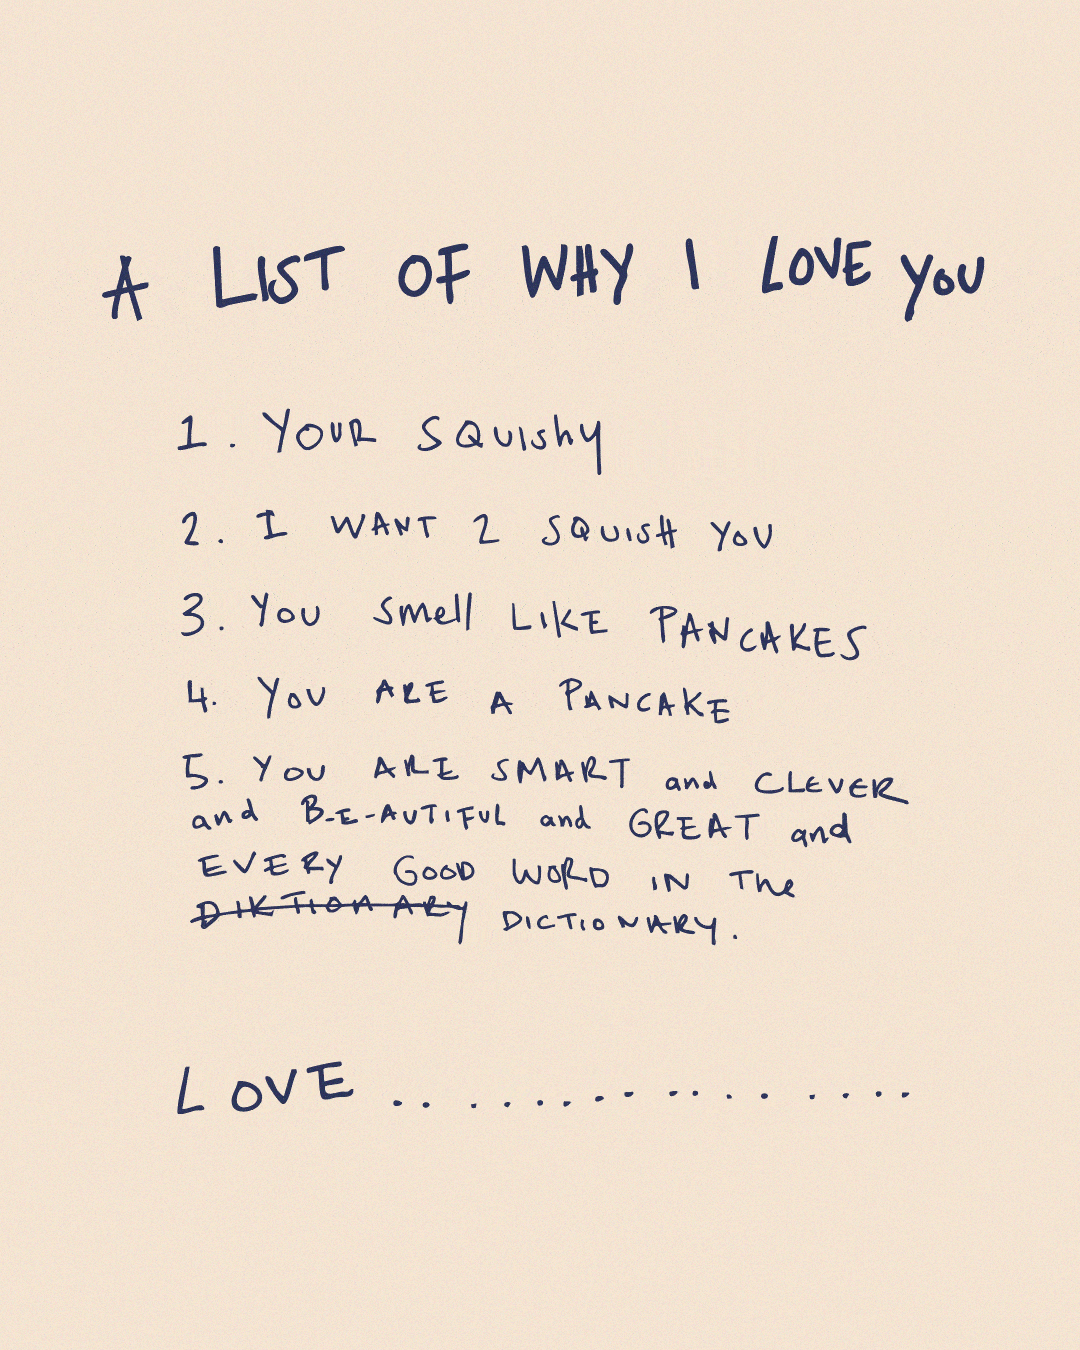 A LIST OF WHY I LOVE YOU
1. YOUR SQUIshy
2. I WANT 2 SQUISH YOU
3. YOU Smell LIKE PANCAKES
4. YOU ARE A PANCAKE
5. YOU ARE SMART and CLEVER
and B-E-AUTIFUL and GREAT and
EVERY GOOD WORD IN The
DIKTIONARY DICTIONARY.
LOVE ....................